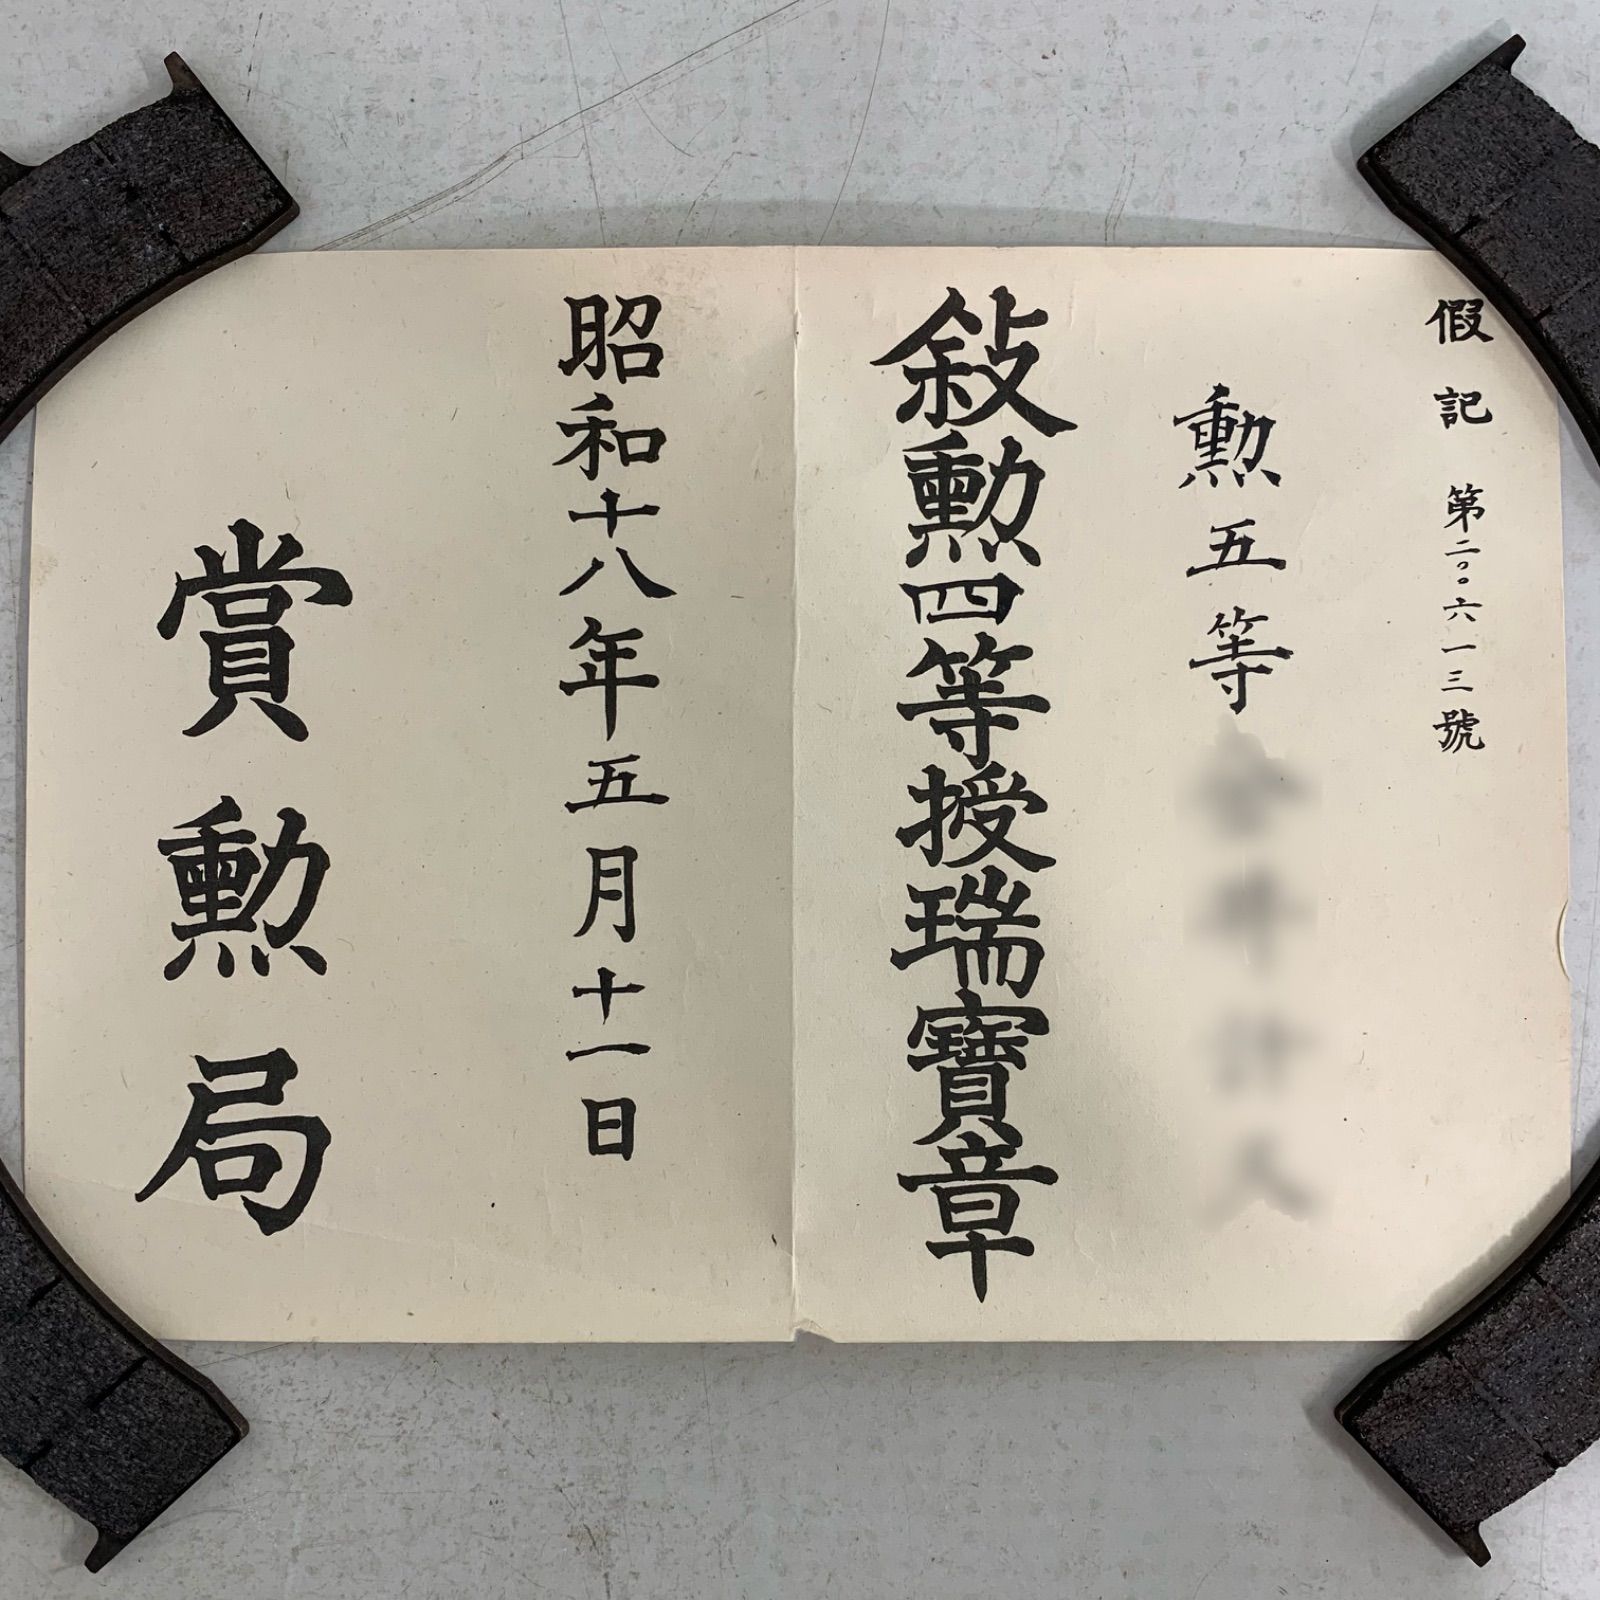 假記 第二〇〇六一三號
勲五等
敍勲四等授瑞寶章
昭和十八年五月十一日
賞勲局